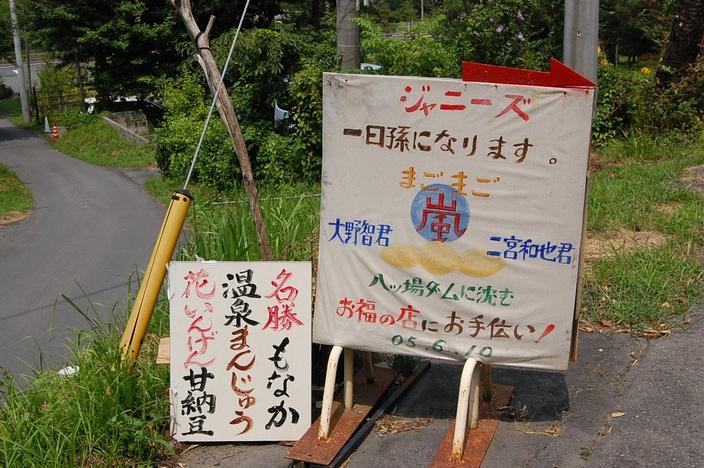 ジャニーズ
一日孫になります。
まごまご
嵐
大野智君
二宮和也君
八ッ場ダムに沈む
お福の店にお手伝い!
05.6.10
名勝もなか
温泉まんじゅう
花いんげん甘納豆